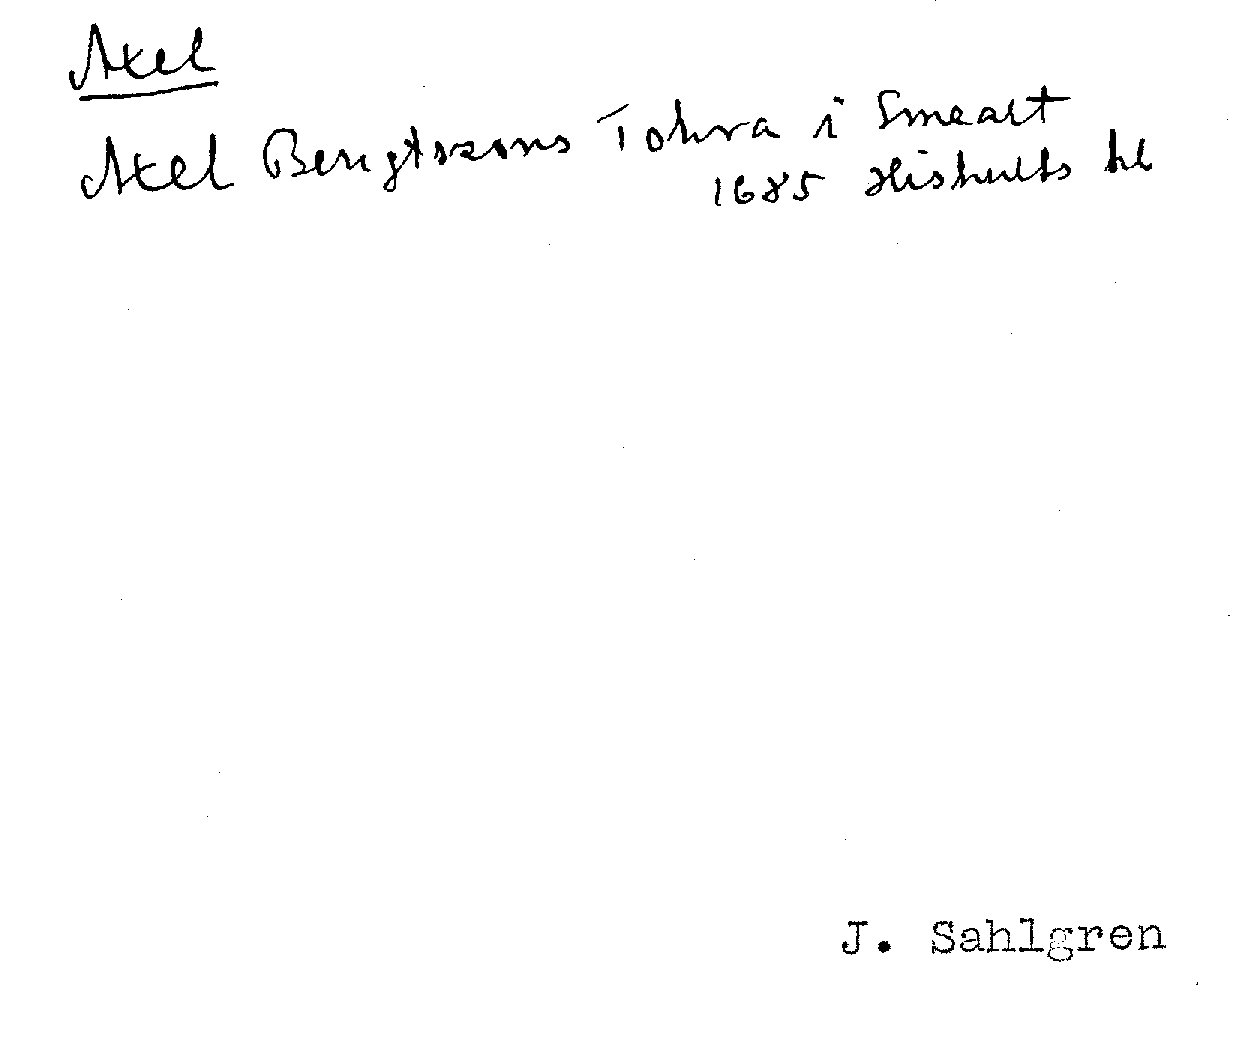 Axel
Axel Bengtszons Tohra i Smealt
1685 Hishults kb
J. Sahlgren